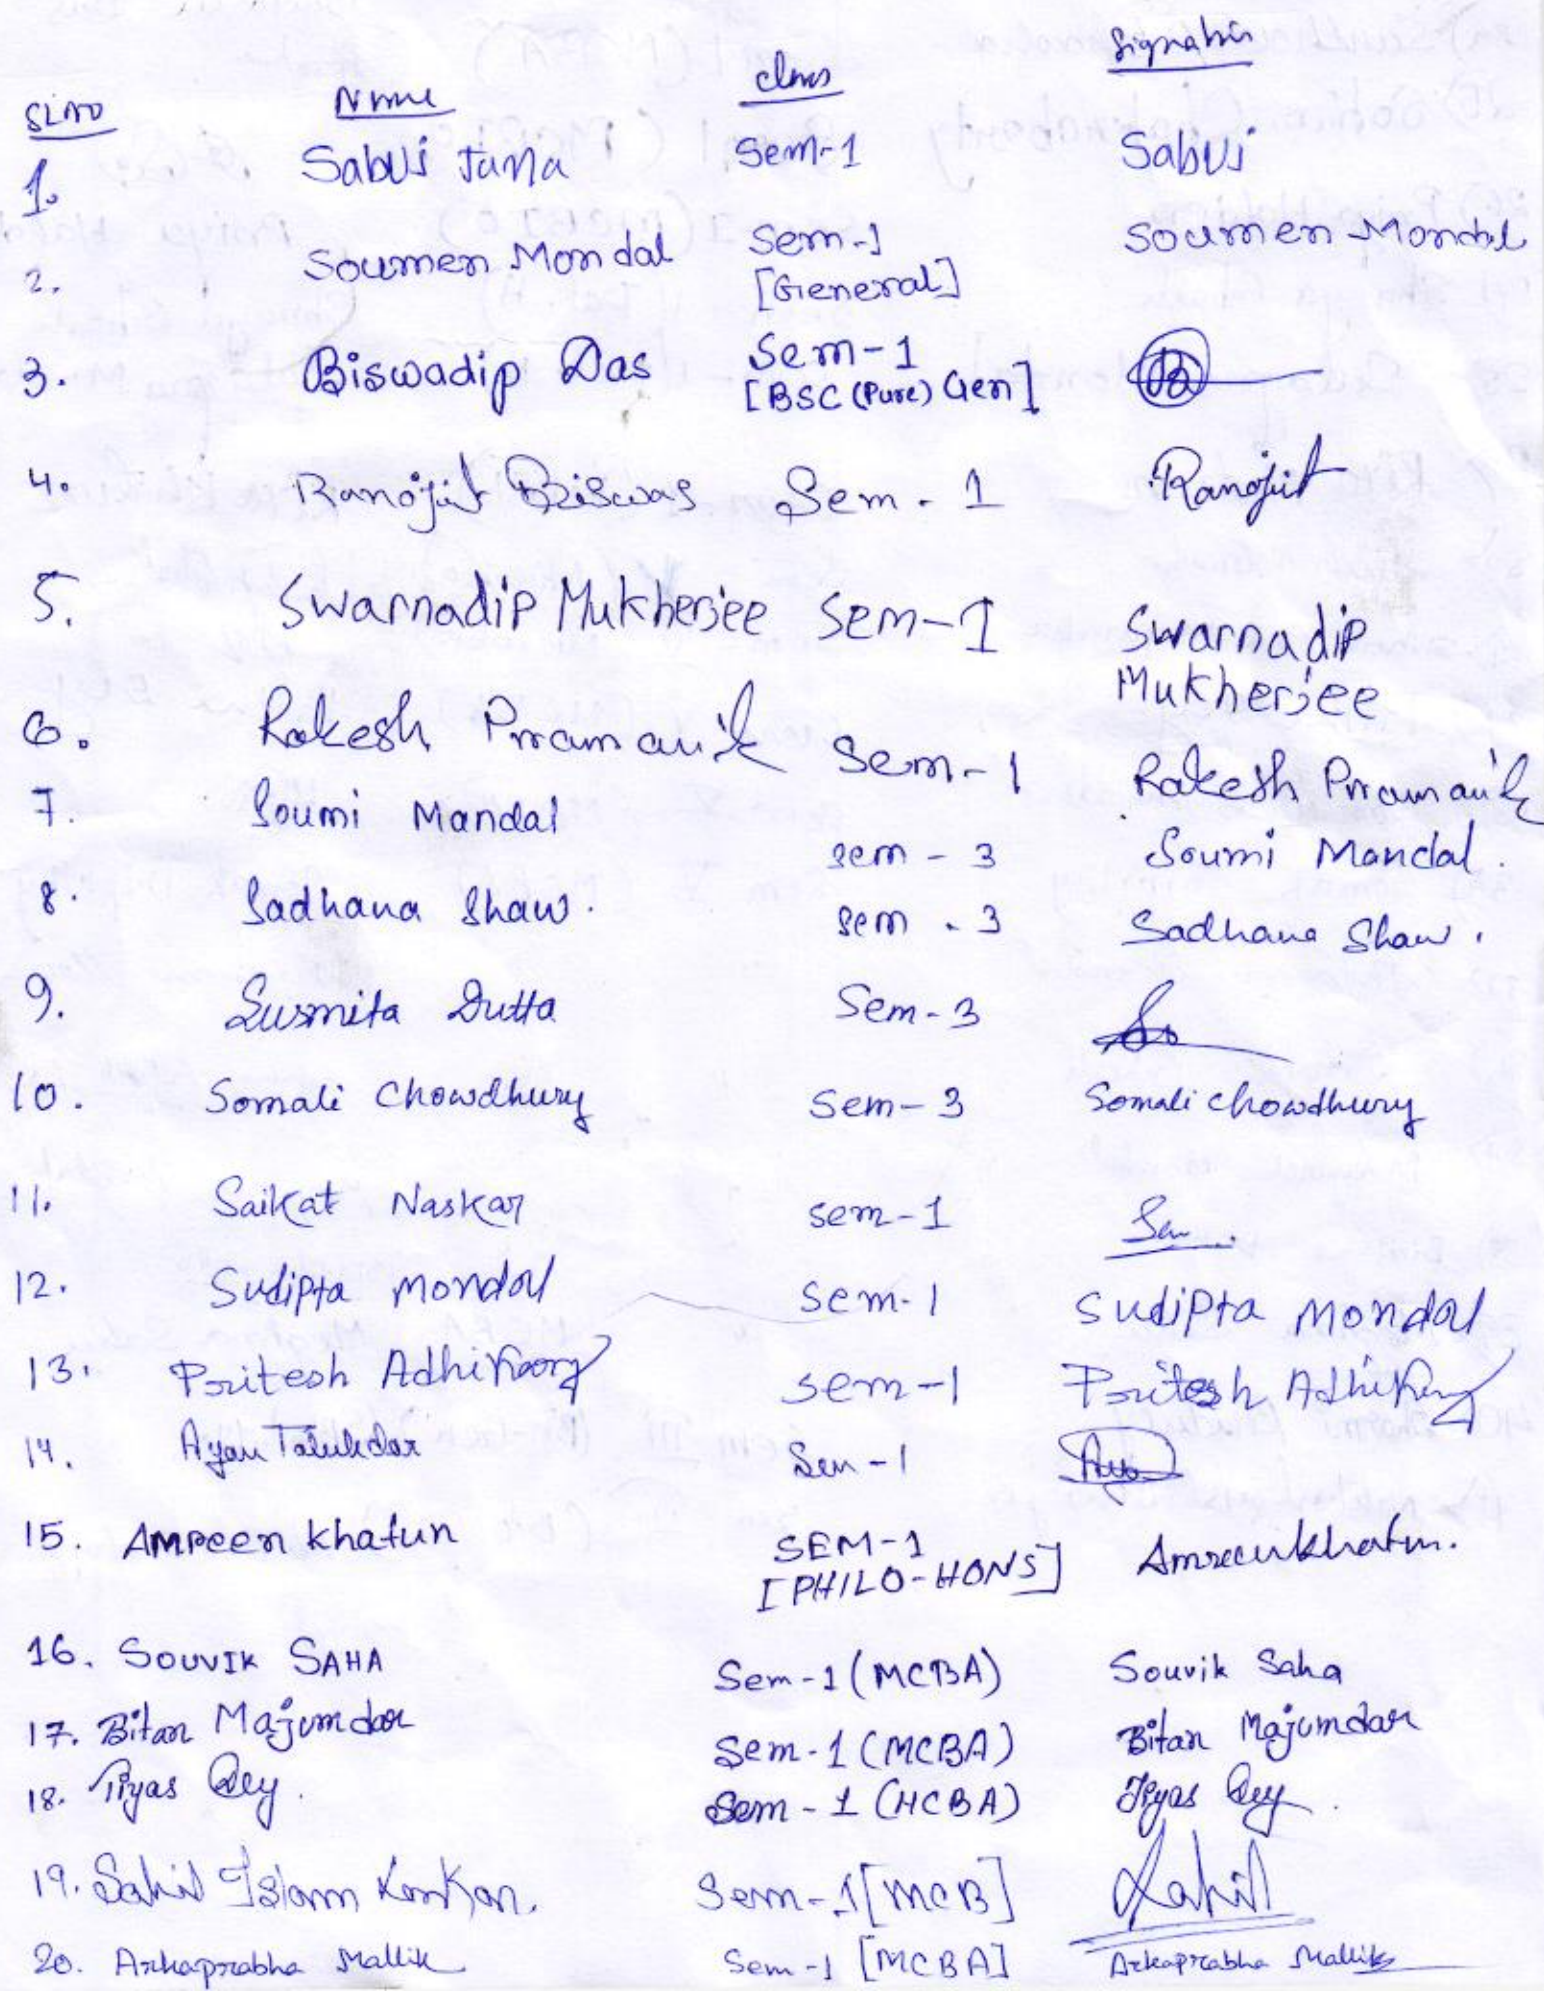 Sl.no Name Class Signature
1. Sabuj Jana Sem-1 Sabuj
2. Soumen Mondal Sem-1 Soumen Mondal
[General]
3. Biswadip Das Sem-1
[BSC (Pure) Gen]
4. Ranojit Biswas Sem - 1 Ranojit
5. Swarnadip Mukherjee Sem-1 Swarnadip
Mukherjee
6. Rakesh Pramanik Sem-1 Rakesh Pramanik
7. Soumi Mandal Sem - 3 Soumi Mandal.
8. Sadhana Shaw. Sem - 3 Sadhana Shaw.
9. Susmita Dutta Sem-3
10. Somali Chowdhury Sem-3 Somali Chowdhury
11. Saikat Naskar Sem-1
12. Sudipta Mondal Sem-1 Sudipta Mondal
13. Pritesh Adhikary Sem-1 Pritesh Adhikary
14. Ayan Talukdar Sem-1
15. Amreen Khatun SEM-1 Amreen Khatun.
[PHILO-HONS]
16. SOUVIK SAHA Sem-1 (MCBA) Souvik Saha
17. Bitan Majumdar Sem-1 (MCBA) Bitan Majumdar
18. Dey. Sem-1 (MCBA) Dey.
19. Sahil Islam Sem-1 [MCB] Sahil
20. Arkaprabha Mallik Sem-1 [MCBA] Arkaprabha Mallik